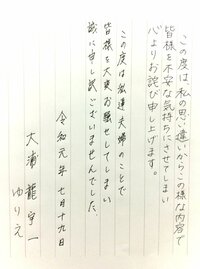 この度は私の思い違いからこの様な内容で
皆様を不安な気持ちにさせてしまい
心よりお詫び申し上げます。
この度は私達夫婦のことで
皆様を大変お騒せしてしまい
誠に申し訳ございませんでした。
令和元年七月十九日
大浦龍宇一
ゆりえ